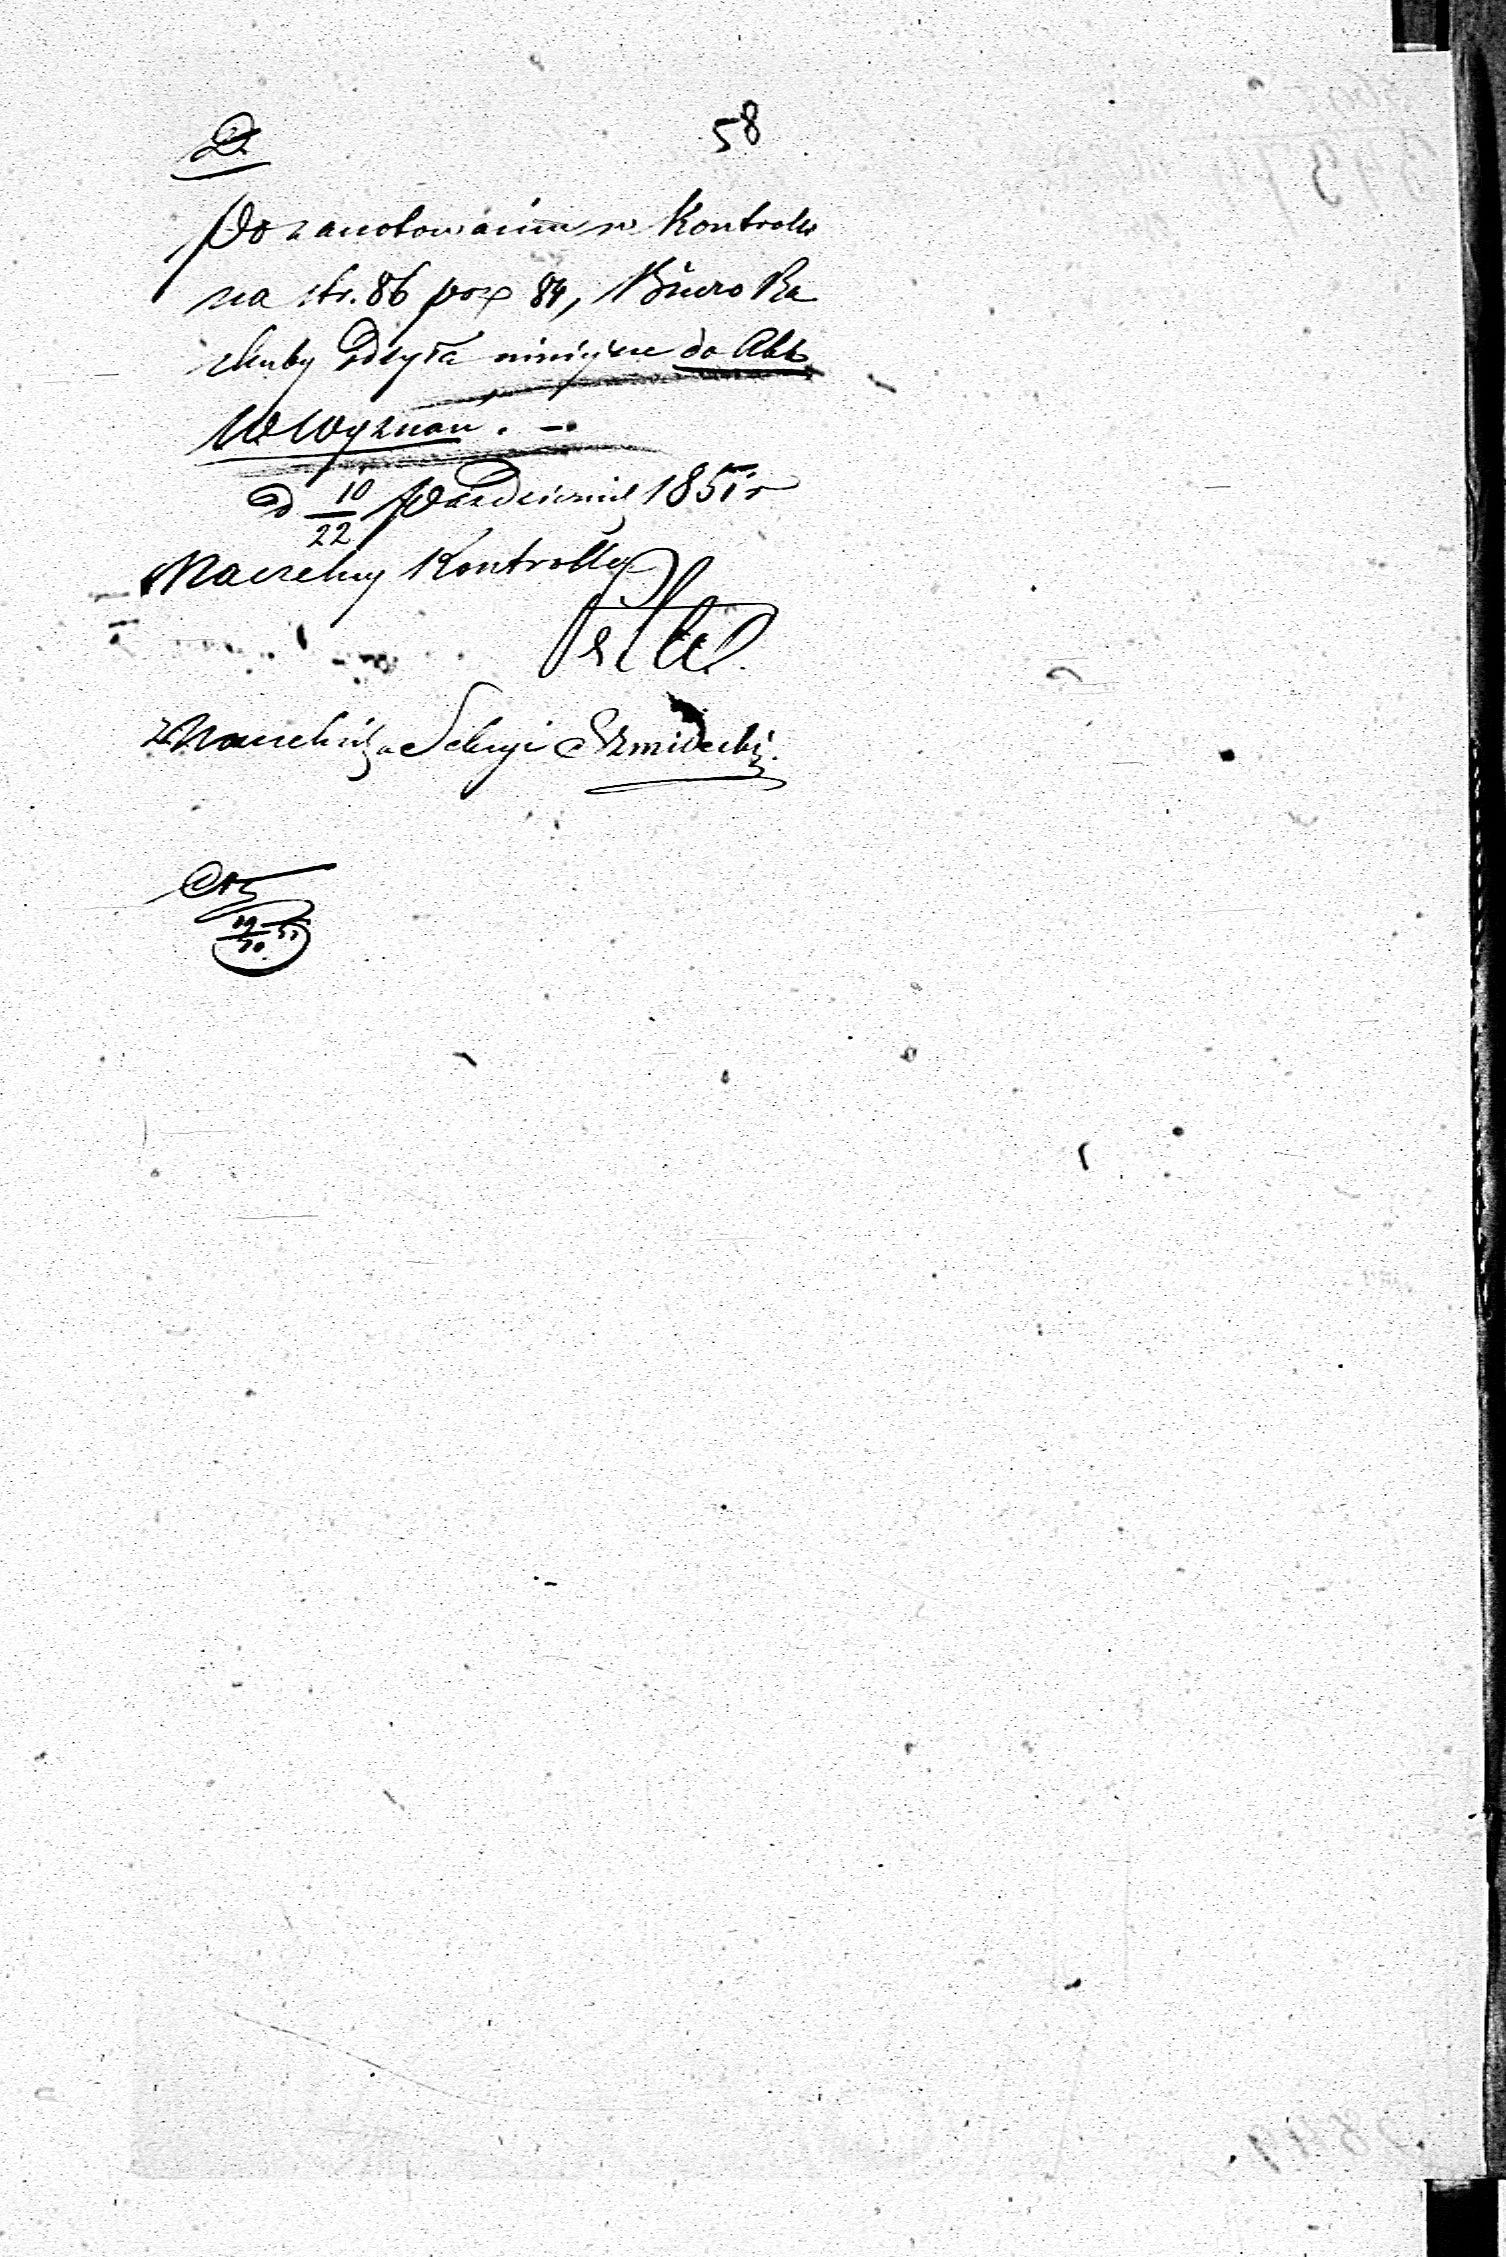 58
D.
Po zanotowaniu w Kontroli
na str. 86 poz 84, Biuro Ra
chuby odsyła niniejsze do Akt
W Wyznań. –
d 10/22 Października 1851 r
Naczelny Kontroller
z Naczelnika Sekcyi Szmidecki